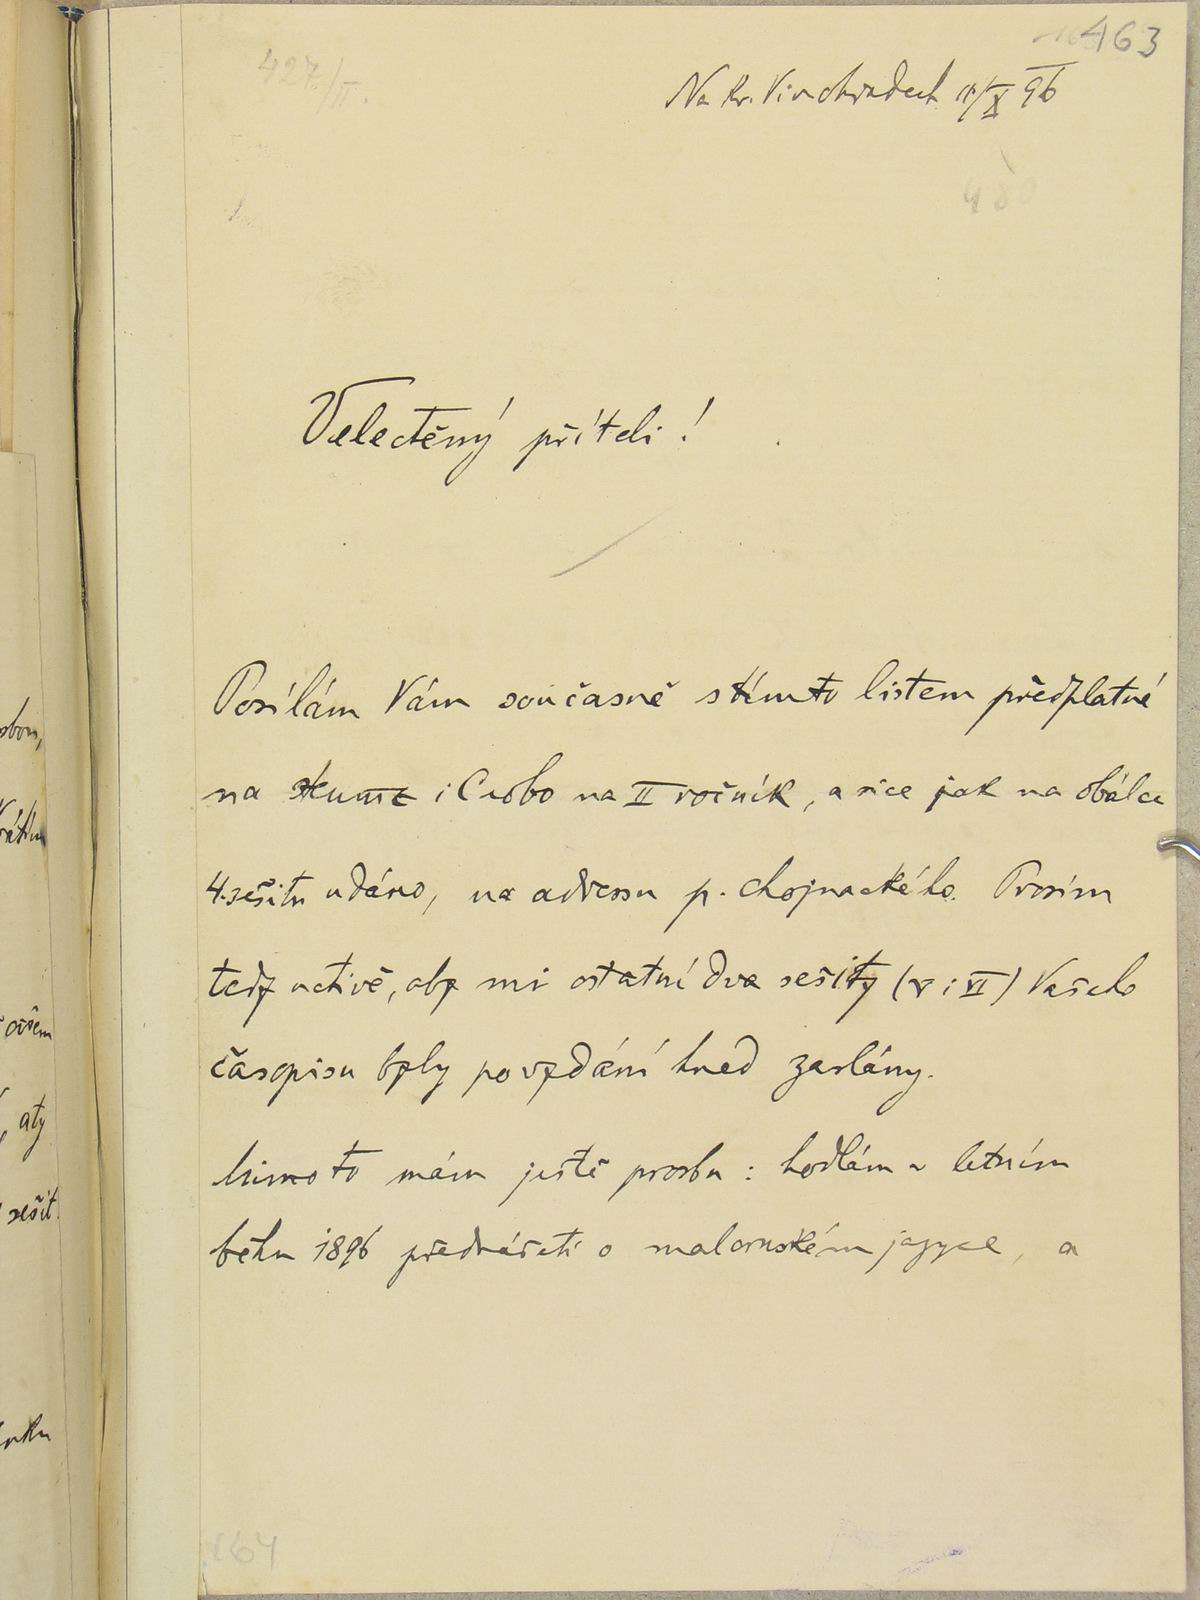 463
427/II.
Na Kr. Vinohradech 11/X 96
480
Velectěný příteli!
Posílám Vám současně s tímto listem předplatné
na i na II ročník, a sice jak na obálce
4. sešitu udáno, na adressu p. Chojnackého. Prosím
tedy uctivě, aby mi ostatní dva sešity (V i VI) Vašeho
časopisu byly po vydání hned zaslány.
Mimo to mám ještě prosbu: hodlám v letním
běhu 1896 přednášeti o maloruském jazyce, a
164